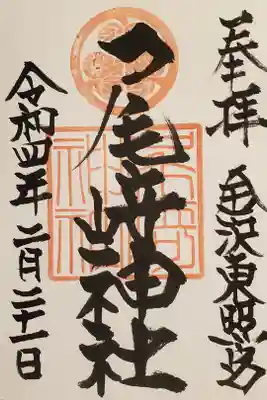 奉拝 金沢東照宮
尾崎神社
令和四年二月二十一日